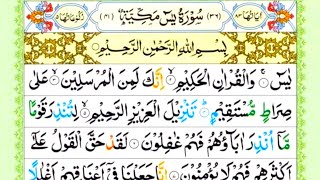 اٰيَاتُهَا ٨٣ (٣٦) سُوْرَةُ يٰسٓ مَكِّيَّةٌ (٤١) رُكُوْعَاتُهَا
بِسْمِ اللّٰهِ الرَّحْمٰنِ الرَّحِيْمِ
يٰسٓ وَالْقُرْاٰنِ الْحَكِيْمِ اِنَّكَ لَمِنَ الْمُرْسَلِيْنَ عَلٰى
صِرَاطٍ مُّسْتَقِيْمٍ تَنْزِيْلَ الْعَزِيْزِ الرَّحِيْمِ لِتُنْذِرَ قَوْمًا
مَّآ اُنْذِرَ اٰبَآؤُهُمْ فَهُمْ غٰفِلُوْنَ لَقَدْ حَقَّ الْقَوْلُ عَلٰٓى
اَكْثَرِهِمْ فَهُمْ لَا يُؤْمِنُوْنَ اِنَّا جَعَلْنَا فِيْٓ اَعْنَاقِهِمْ اَغْلٰلًا